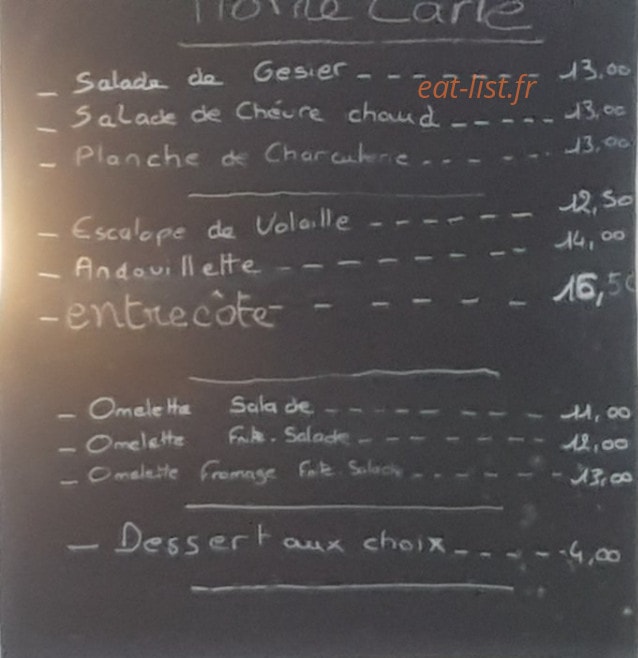 Notre Carte
- Salade de Gesier - - - - - - - 13,00
eat-list.fr
- Salade de Chévre chaud - - - - - 13,00
- Planche de Charcuterie - - - - - - 13,00
- Escalope de Volaille - - - - - - 12,50
- Andouillette - - - - - - - - 14,00
- entrecôte - - - - - - 16,50
- Omelette Salade - - - - - - - - 11,00
- Omelette Frite. Salade - - - - - - - 12,00
- Omelette fromage Frite Salade - - - - - - 13,00
- Dessert aux choix - - - - - 4,00